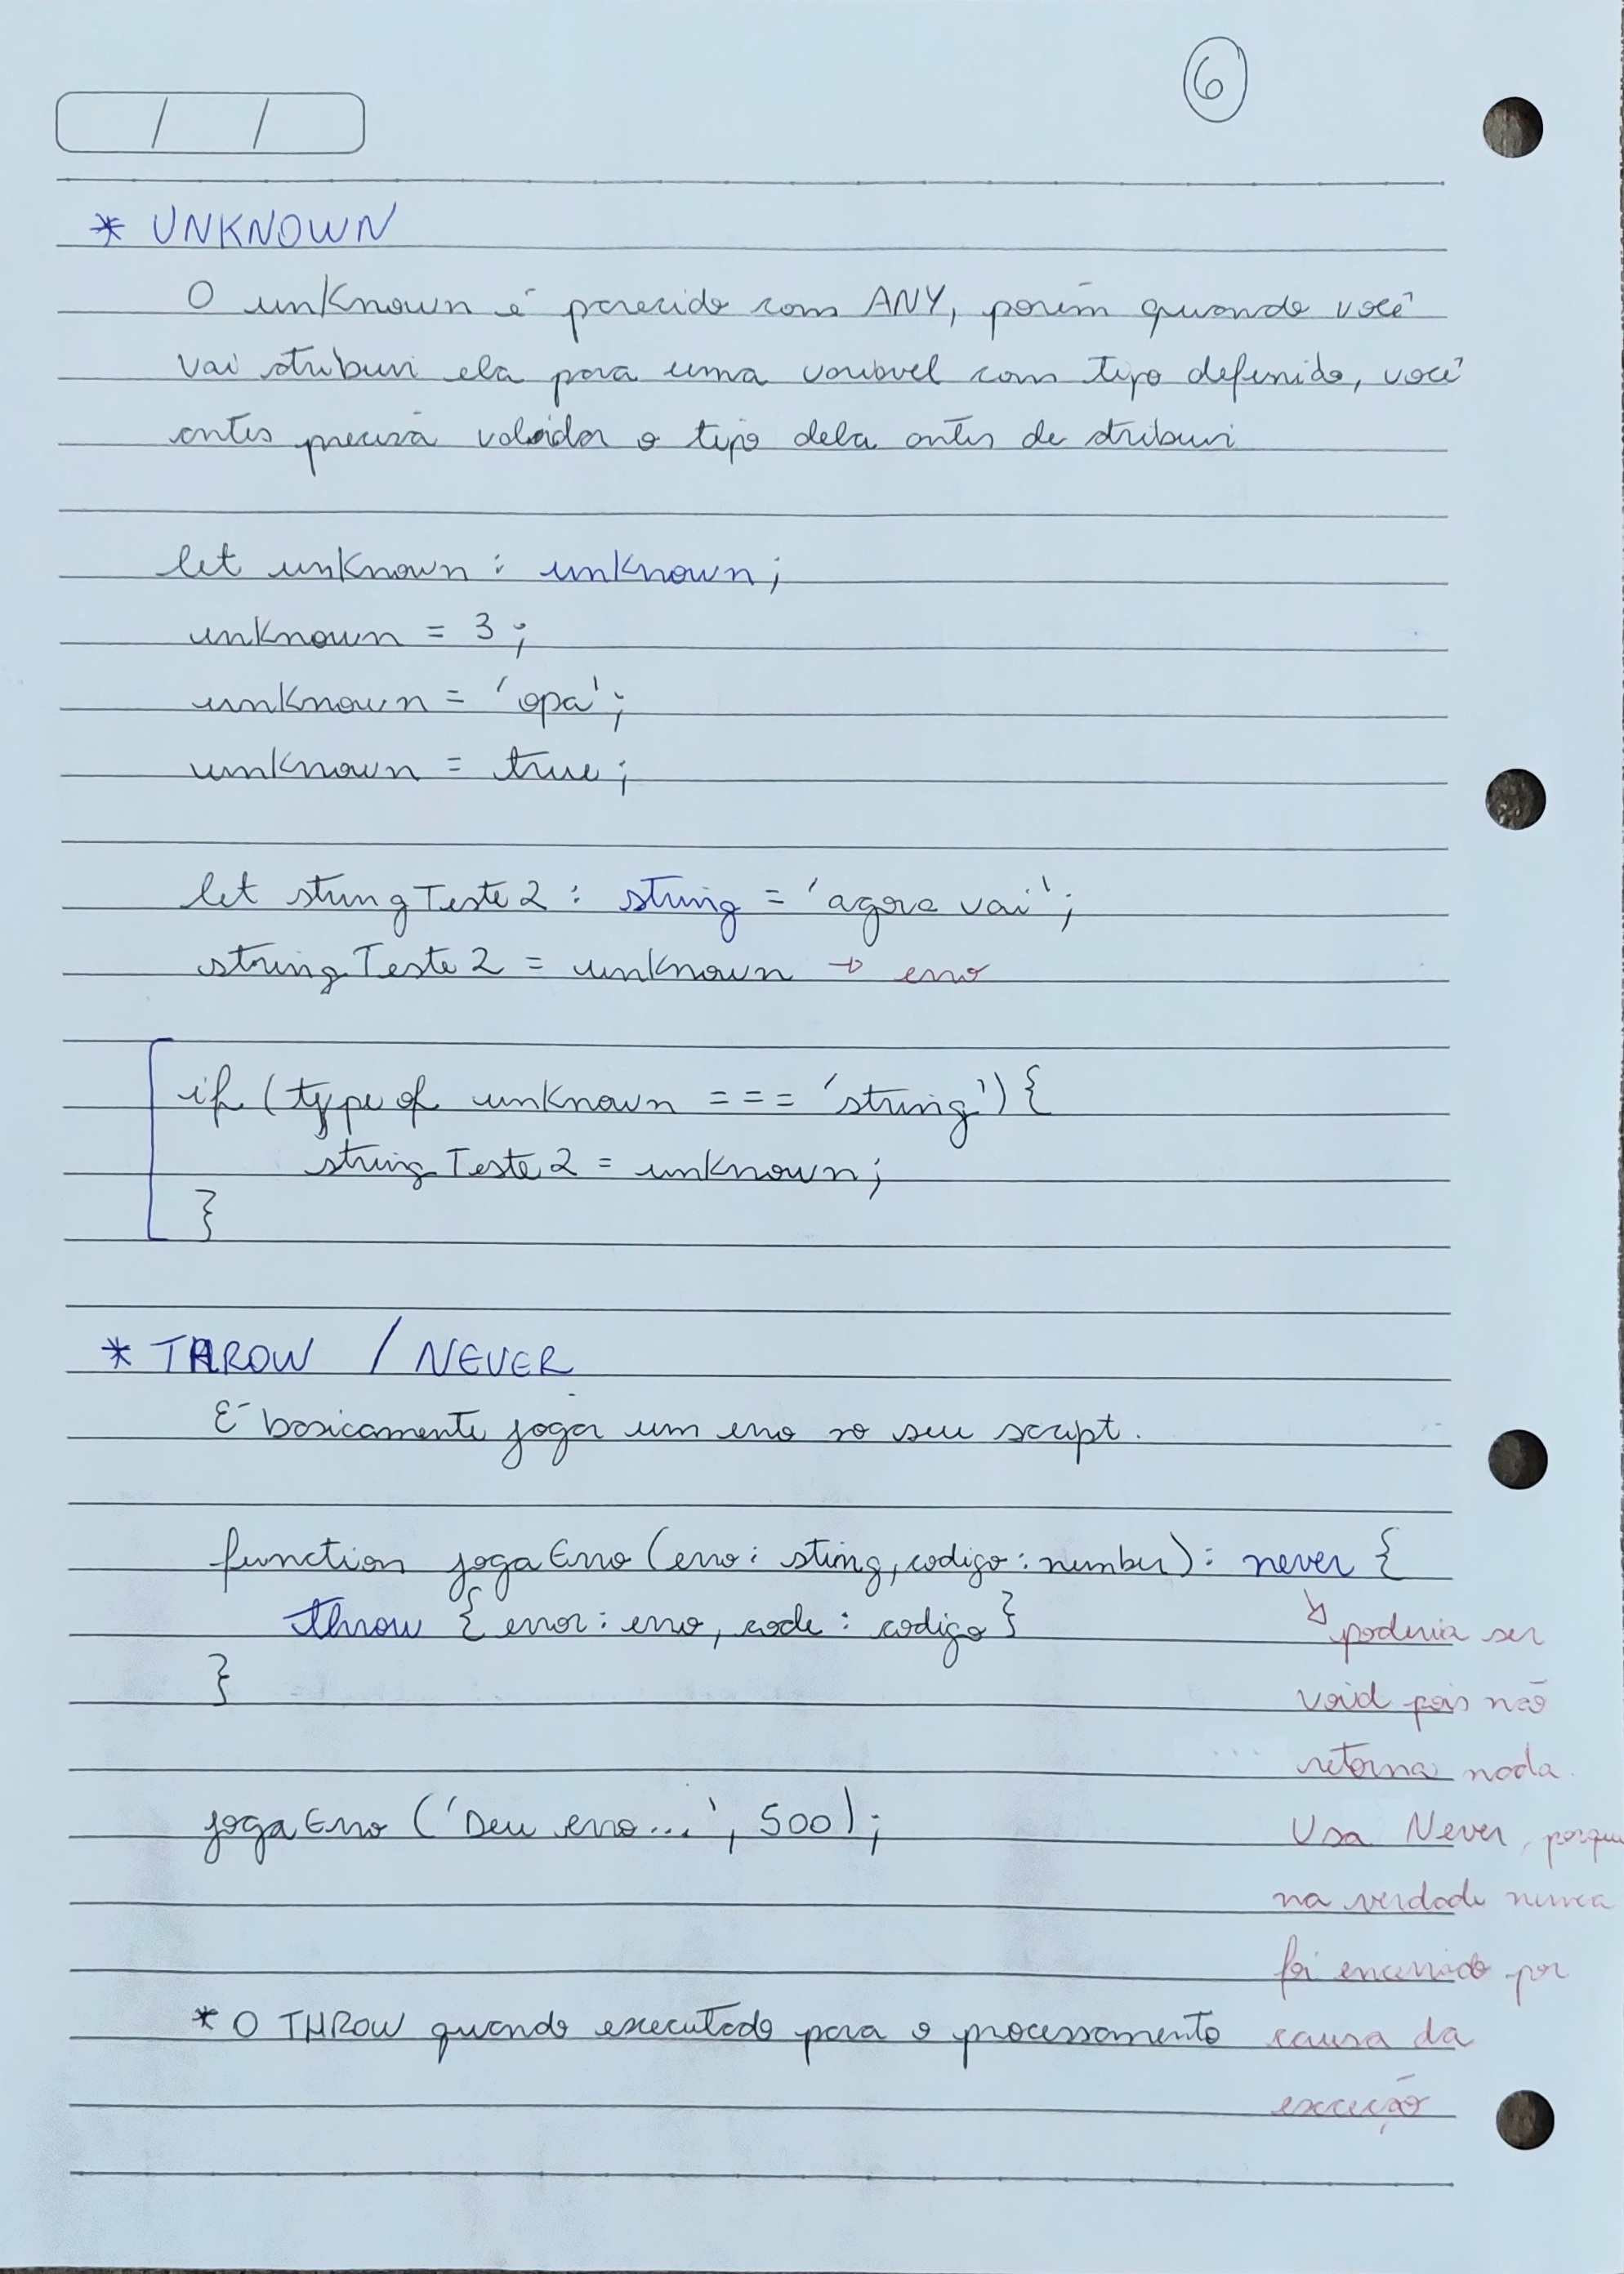 6
/ /
* UNKNOWN
O unKnown é parecido com ANY, porém quando você
vai atribuir ela para uma variável com tipo definido, você
antes precisa validar o tipo dela antes de atribuir
let unKnown : unKnown;
unKnown = 3;
unKnown = 'opa';
unKnown = true;
let stringTeste2 : string = 'agora vai';
stringTeste2 = unKnown → erro
if (typeof unKnown === 'string') {
stringTeste2 = unKnown;
}
* THROW / NEVER
É basicamente jogar um erro no seu script.
function jogaErro (erro: sting, codigo: number): never {
throw { error: erro, code: codigo }
}
poderia ser
void pois não
retorna nada.
jogaErro ('Deu erro...', 500);
Usa Never, porque
na verdade nunca
foi encerrado por
* O THROW quando executado para o processamento
causa da
exceção